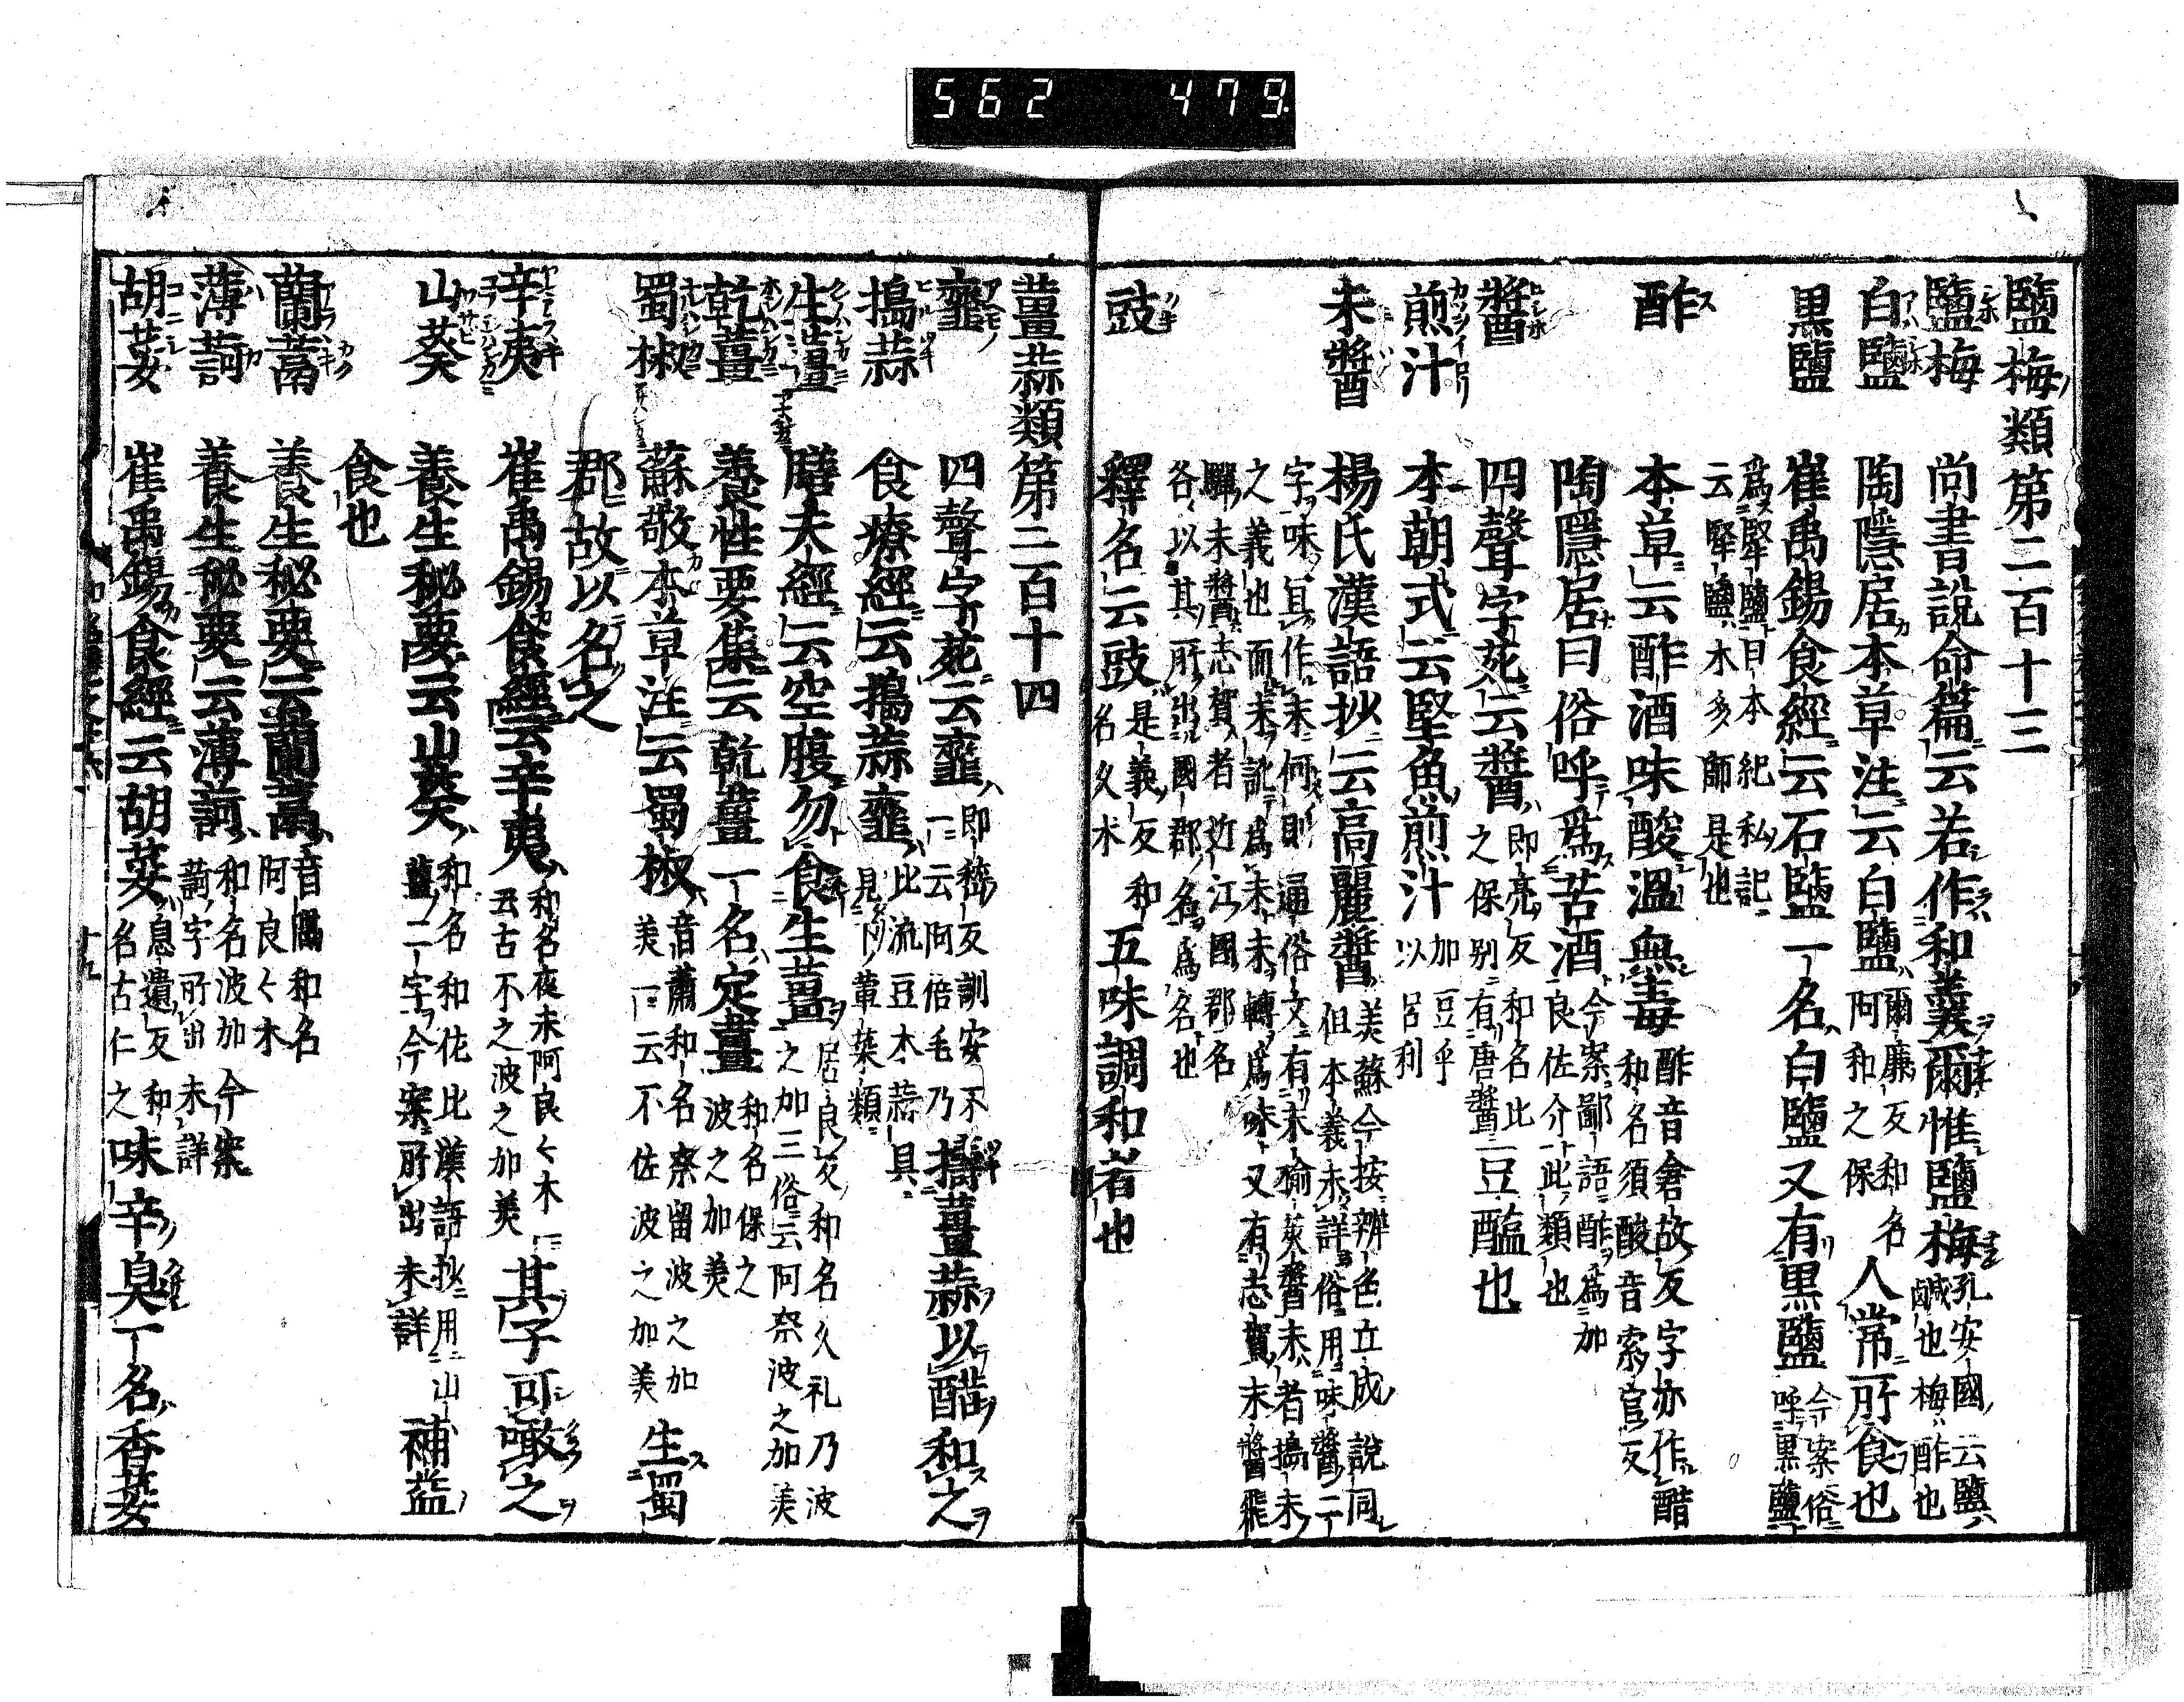 562 479
鹽梅類第二百十三
鹽梅 尚書說命篇云若作和羹爾惟鹽梅 孔安國云鹽
鹹也梅酢也
白鹽 陶隱居本草注云白鹽 爾廉反和名
阿和之保 人常所食也
黒鹽 崔禹錫食經云石鹽一名白鹽又有黒鹽 今案俗
呼黒鹽
爲堅鹽日本紀私記
云堅鹽木多師是也
酢 本草云酢酒味酸温無毒 酢音倉故反字亦作醋
和名須酸音索官反
陶隱居曰俗呼爲苦酒 今案鄙語酢爲加
良佐介此類也
醬 四聲字苑云醬 即亮反和名比
之保別有唐醬 豆醢也
煎汁 本朝式云堅魚煎汁 加豆乎
以呂利
末醬 楊氏漢語抄云高麗醬 美蘇今按辨色立成說同
但本義未詳俗用味醬二
字味宜作末何則通俗文有末楡莢醬末者搗末
之義也而末訛爲未未轉爲味又有志賀末醬飛
驒末醬志賀者近江國郡名
各以其所出國郡名爲名也
豉 釋名云豉 是義反和
名久木 五味調和者也
薑蒜類第二百十四
韲 四聲字苑云韲 即嵇反訓安不
一云阿倍毛乃 擣薑蒜以醋和之
搗蒜 食療經云搗蒜韲 比流豆木蒜具
見下葷菜類
生薑 膳夫經云空腹勿食生薑 居良反和名久礼乃波
之加三俗云阿奈波之加美
乾薑 養性要集云乾薑一名定薑 和名保之
波之加美
蜀椒 蘇敬本草注云蜀椒 音蕭和名奈留波之加
美一云不佐波之加美 生蜀
郡故以名之
辛夷 崔禹錫食經云辛夷 和名夜末阿良々木一
云古不之波之加美 其子可噉之
山葵 養生秘要云山葵 和名和佐比漢語抄用山
薑二字今案所出未詳 補益
食也
蘭蒚 養生秘要云蘭蒚 音隔和名
阿良々木
薄訶 養生秘要云薄訶 和名波加今案
訶字所出未詳
胡荽 崔禹錫食經云胡荽 息遺反和
名古仁之 味辛臭一名香荽